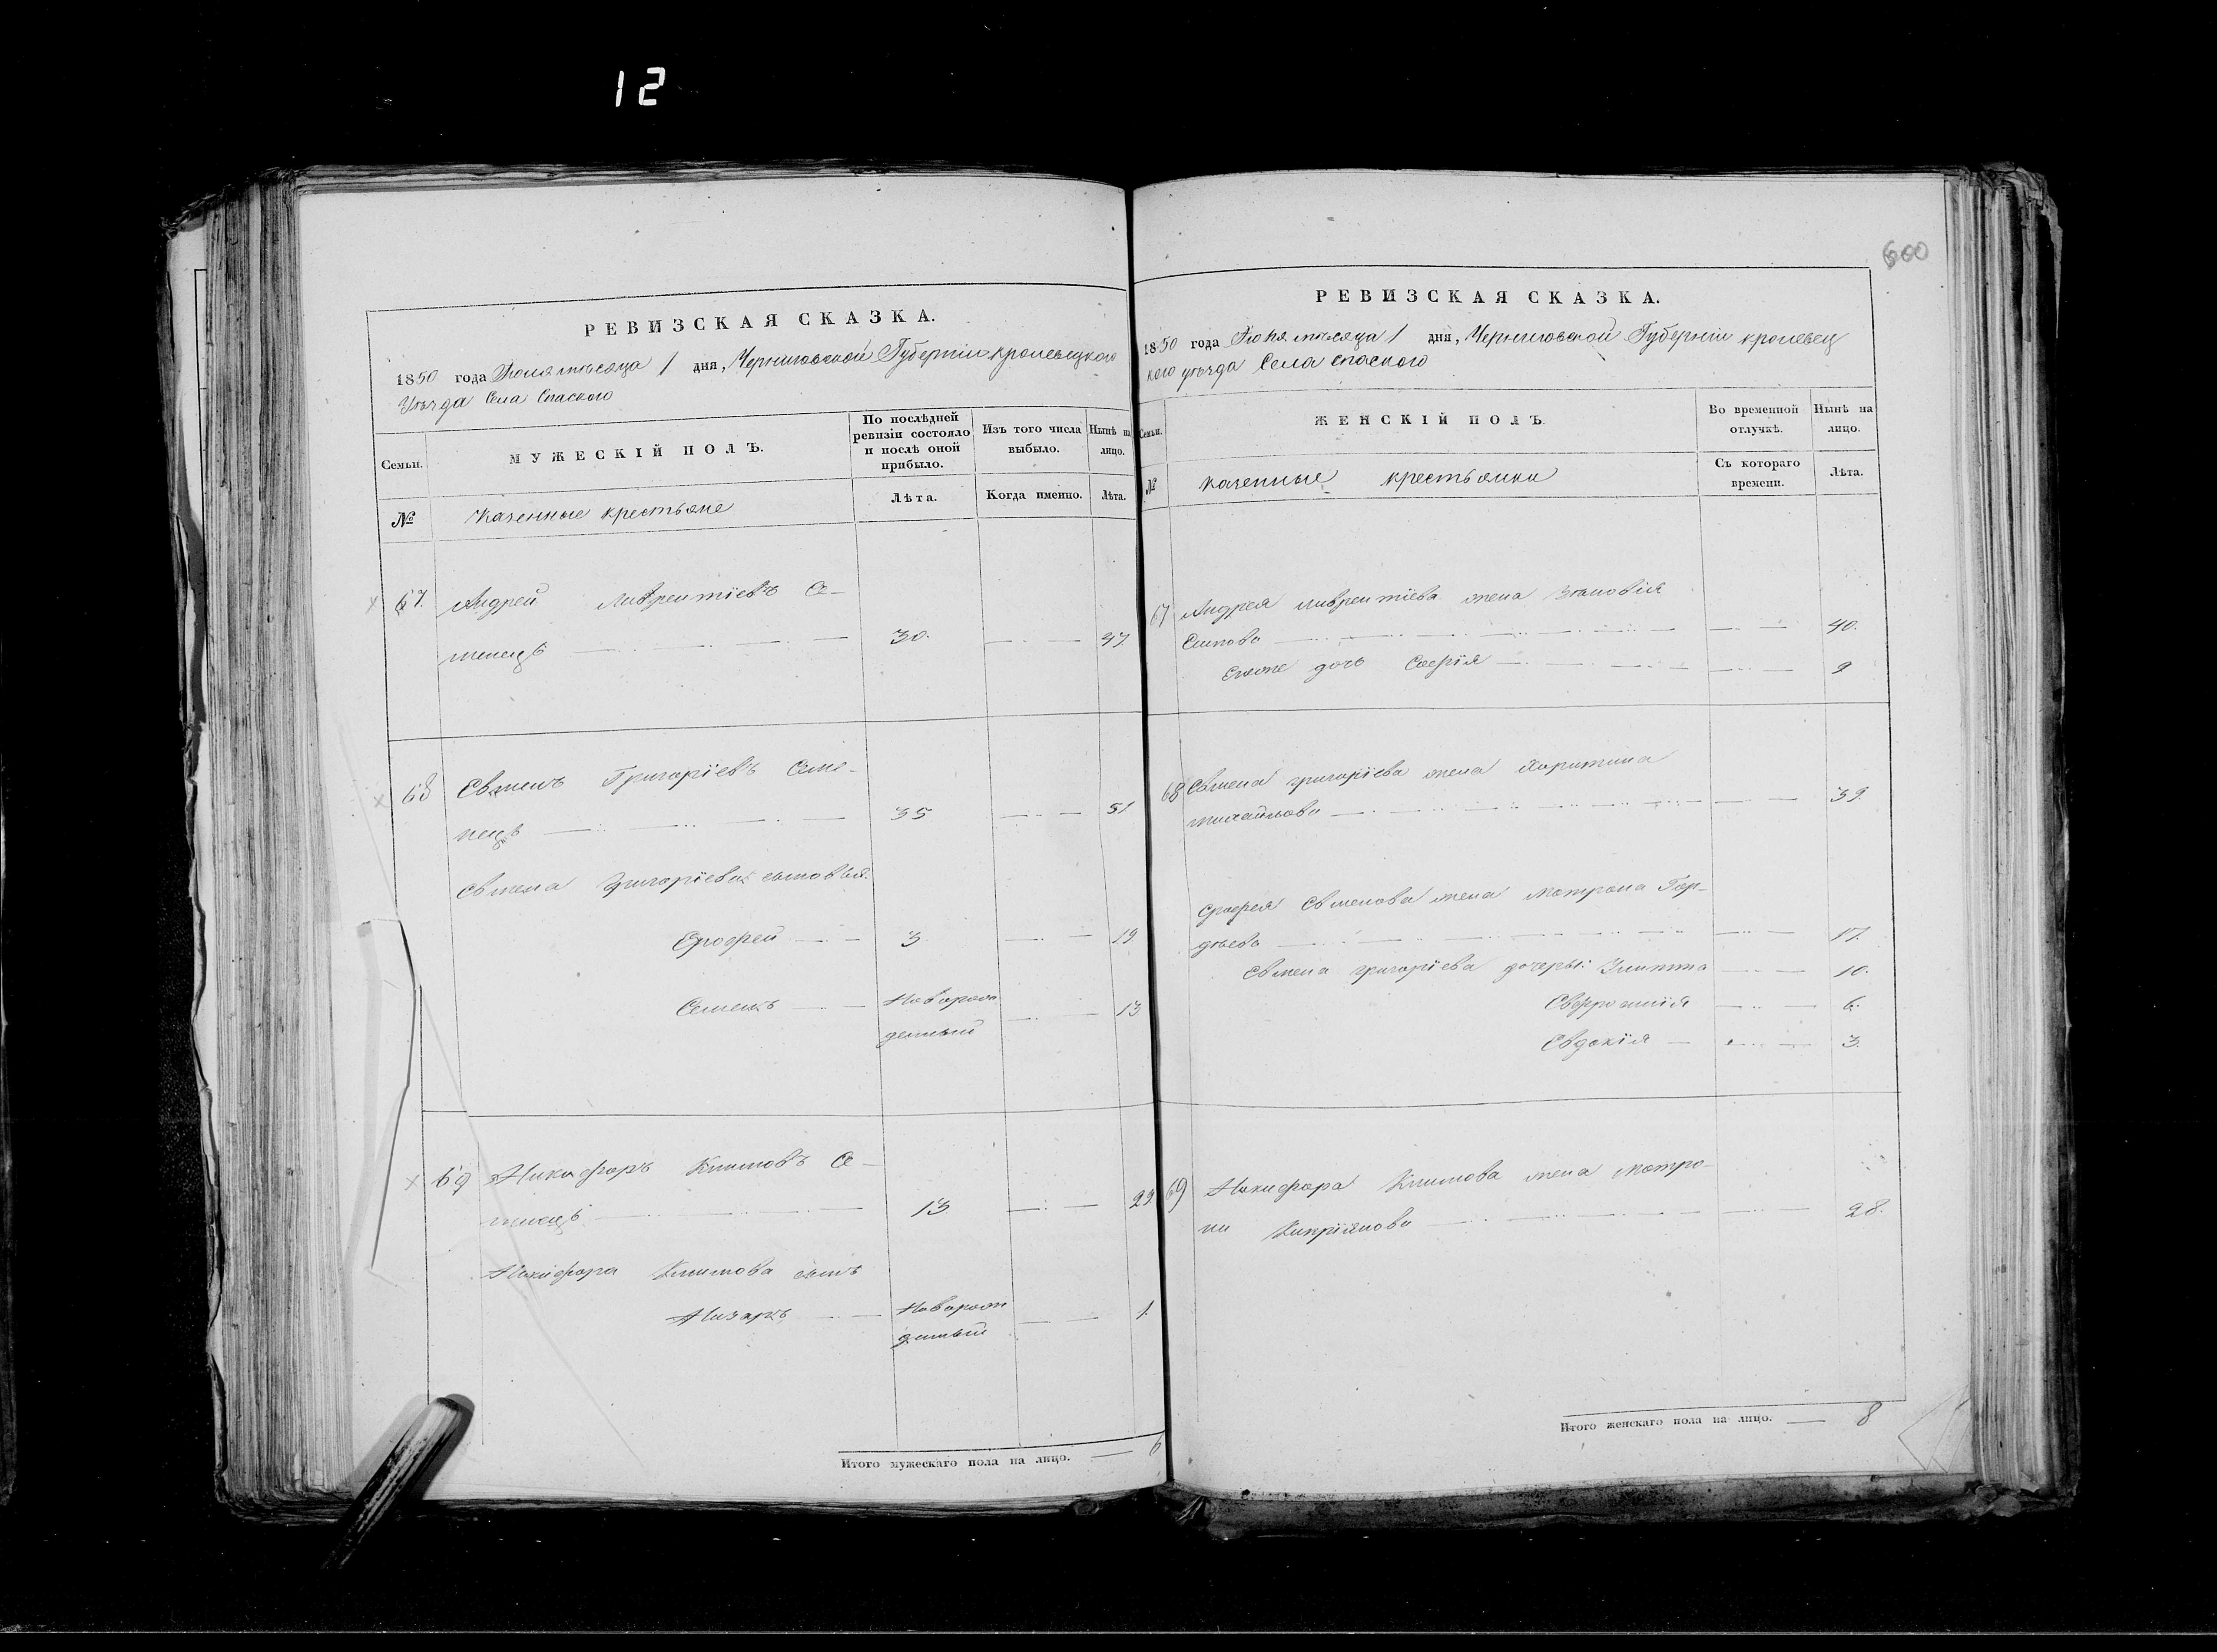 12
600
РЕВИЗСКАЯ СКАЗКА.
1850 года Июля мѣсяца 1 дня, Черниговской Губерніи кролевецкого
Уѣзда Села Спаского
Семьи.
МУЖЕСКІЙ ПОЛЪ.
По послѣдней ревизіи состояло и послѣ оной прибыло.
Изъ того числа выбыло.
Нынѣ на лицо.
№
Казенные крестьяне
Лѣта.
Когда именно.
Лѣта.
67. Андрей Лаврентіевъ Се-
менецъ 30. 47
68 Евменъ Григоріевъ Семе-
нецъ 35 51
Евмена Григоріева сыновья.
Ерофей 3 19
Семенъ Новорож 13
денный
69 Никифоръ Климовъ Се-
менецъ 13 29
Никифора Климова сынъ
Назаръ Новорож 1.
денный
Итого мужескаго пола на лицо. 6
РЕВИЗСКАЯ СКАЗКА.
1850 года Июля мѣсяца 1 дня, Черниговской Губерніи кролевец
кого уѣзда Села Спаского
Семьи.
ЖЕНСКІЙ ПОЛЪ.
Во временной отлучкѣ.
Нынѣ на лицо.
№
казенные крестьянки
Съ котораго времени.
Лѣта.
67 Андрея Лаврентіева жена Зѣновія
40.
дочь Софія 9
68 Евмена григоріева жена Харитина
михайлова 39.
Ерофея Евменова жена Матрона Гор-
дѣева 17.
Евмена григоріева дочеры: Улитта 10.
Евфросинія 6.
Евдокія 3.
69 Никифора Климова жена Матро-
на Кипріянова 28.
Итого женскаго пола на лицо. 8